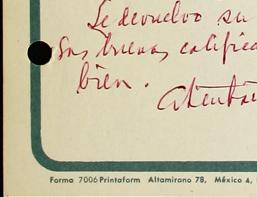 Le devuelvo su
sus buenas califica
bien.
Atentam
Forma 7006 Printaform Altamirano 78, México 4,